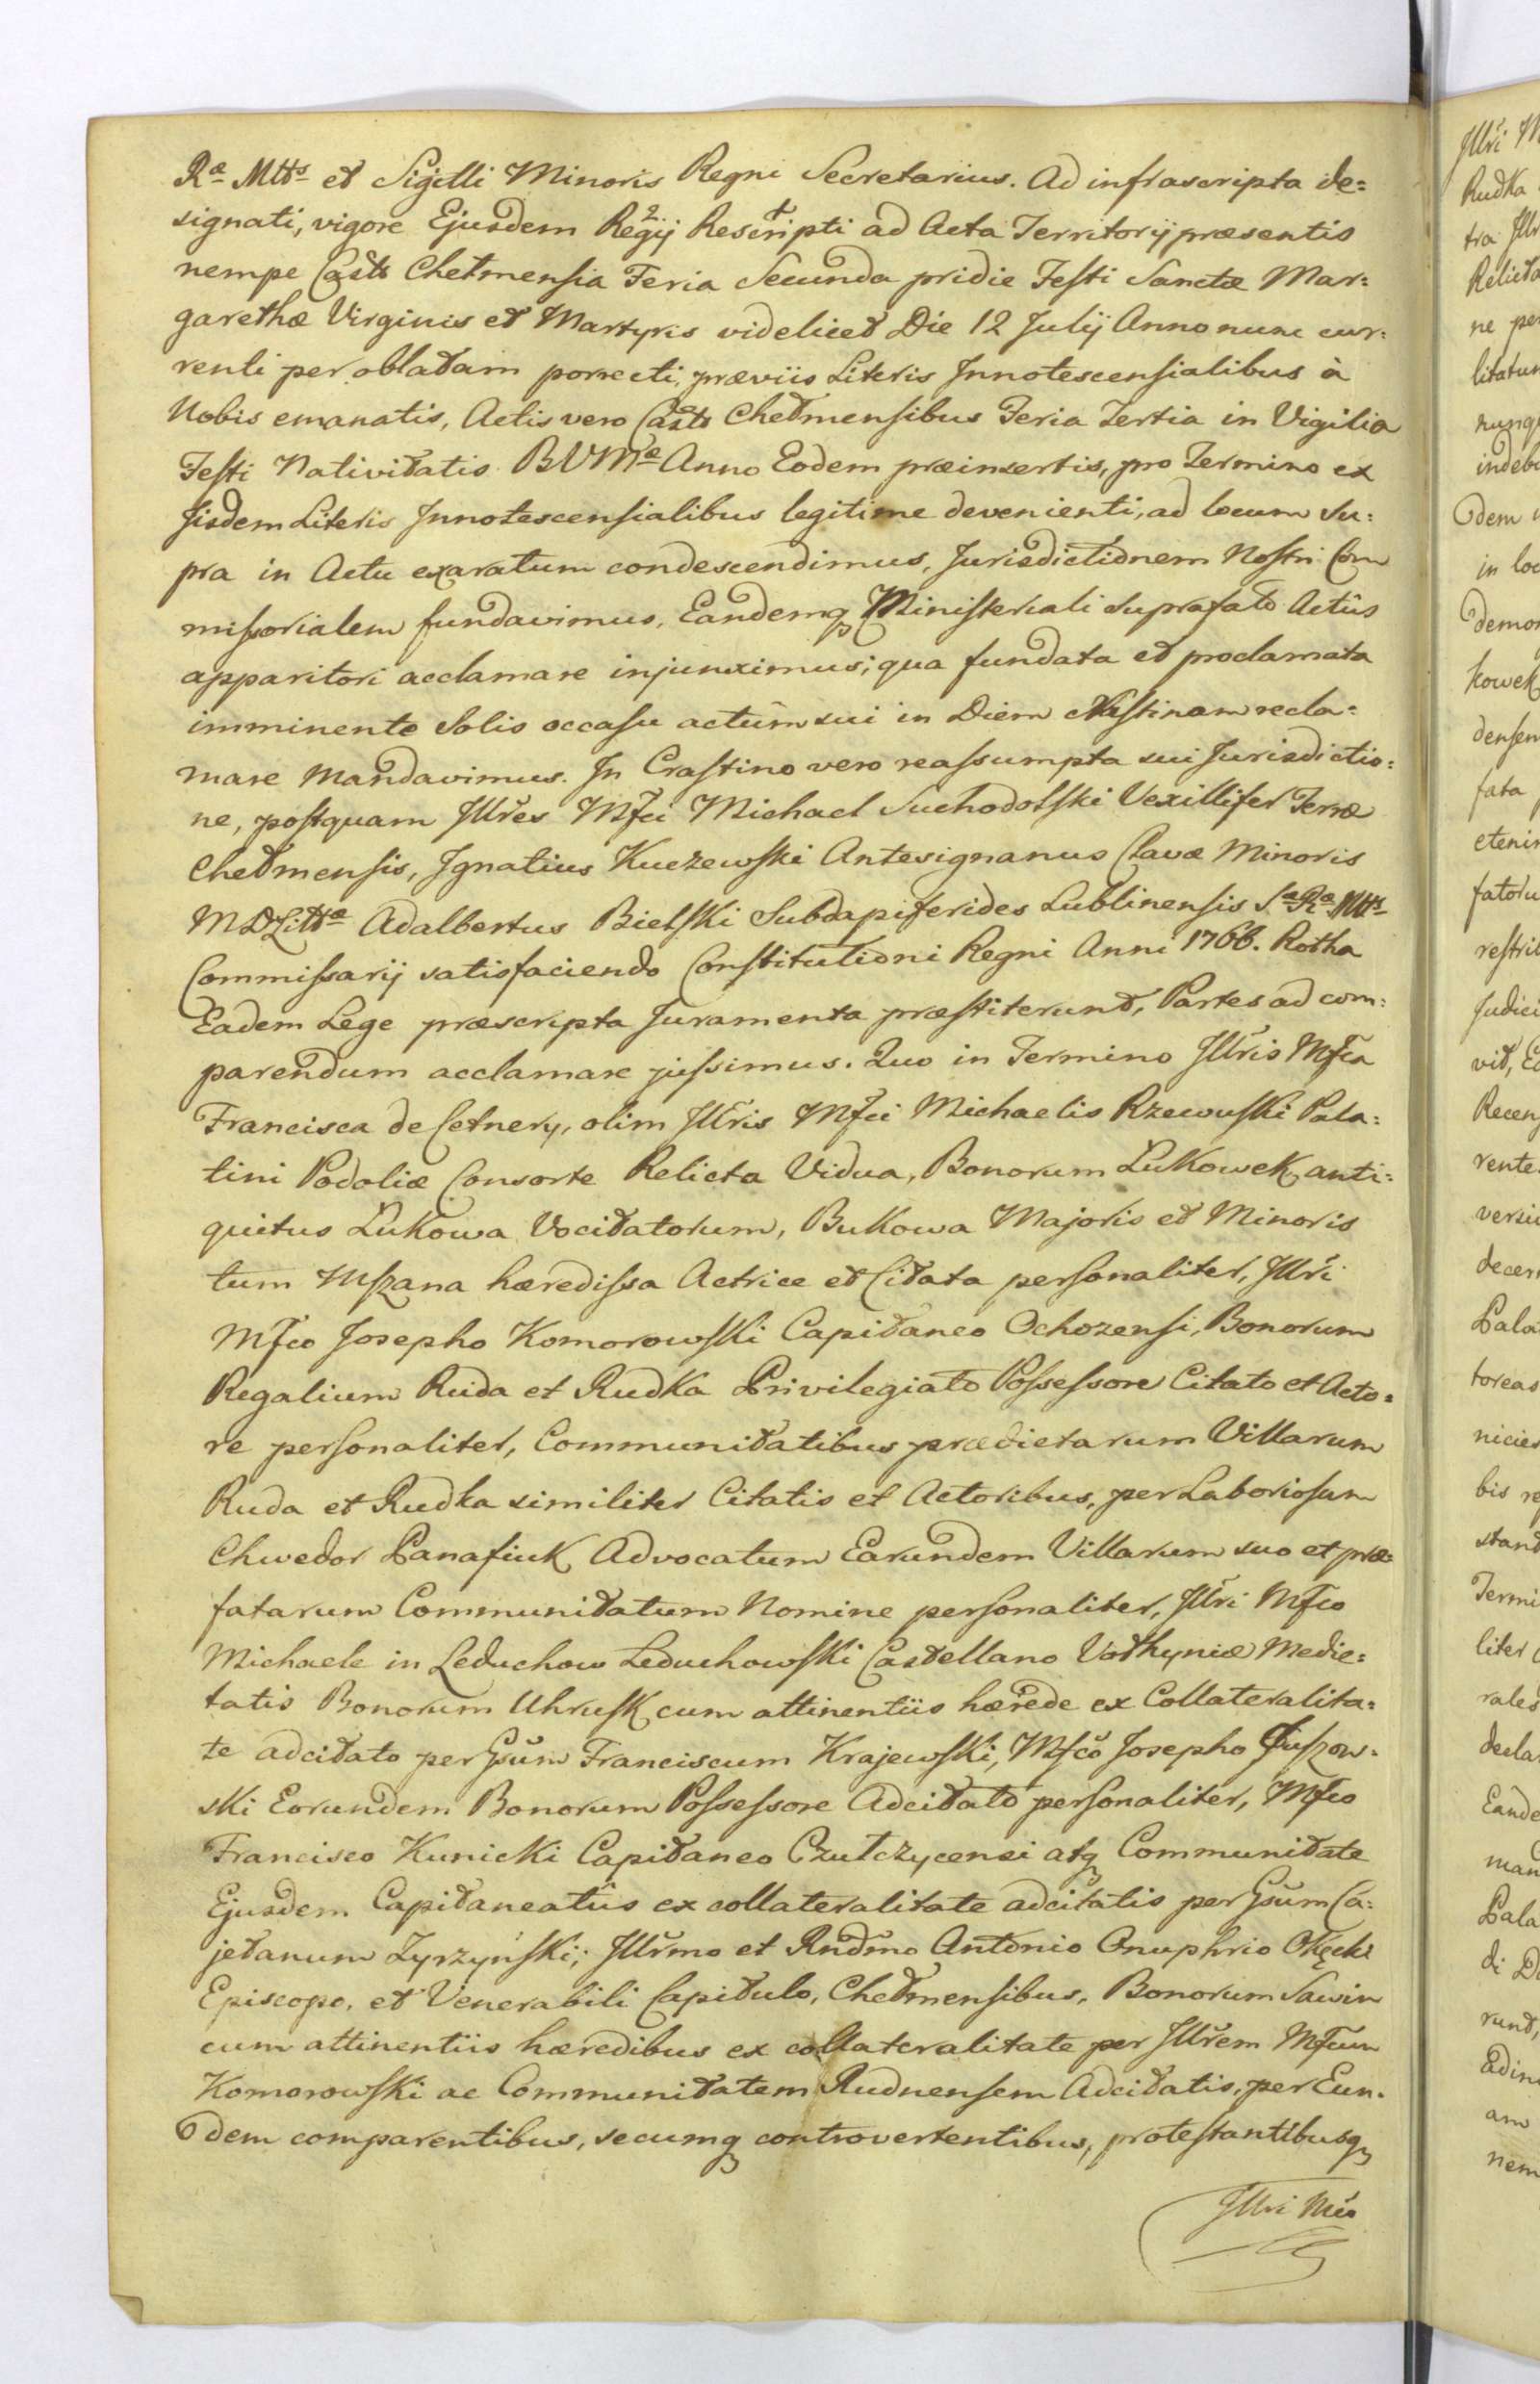 Ræ Mtts et Sigilli Minoris Regni Secretarius. Ad infrascripta de=
signati, vigore Ejusdem Regij Rescripti ad Acta Territorij præsentis
nempe Casts Chełmensia Feria Secunda pridie Festi Sanctæ Mar=
garethæ Virginis et Martyris videlicet Die 12 Julij Anno nunc cur=
renti per oblatam porrecti, præviis Literis Innotescensialibus à
Nobis emanatis, Actis vero Casts Chełmensibus Feria Tertia in Vigilia
Festi Nativitatis BVMæ Anno Eodem præinsertis, pro Termino ex
Jisdem Literis Innotescensialibus legitime devenienti, ad locum su=
pra in Actu exaratum condescendimus, Jurisdictionem Nostri Com
missorialem fundavimus, Eandemq Ministeriali suprafato Actûs
apparitori acclamare injunximus; qua fundata et proclamata
imminente Solis occasu actûm sui in Diem Crastinam recla=
mare Mandavimus. In Crastino vero reassumpta sui Jurisdictio=
ne, postquam Jllr̃es Mfci Michael Suchodolski Vexillifer Terræ
Chełmensis, Ignatius Kuczewski Antesignanus Clavæ Minoris
MDLittæ Adalbertus Bielski Subdapiferides Lublinensis Sæ Ræ Mtts
Commissarij satisfaciendo Constitutioni Regni Anni 1766. Rotha
Eadem Lege præscripta Juramenta præstiterunt, Partes ad com=
parendum acclamare jussimus. Quo in Termino Jllr̃is Mfca
Francisca de Cetnery, olim Jllr̃is Mfci Michaelis Rzewuski Pala=
tini Podoliæ Consorte Relicta Vidua, Bonorum Łukowek anti=
quitus Łukowa Vocitatorum, Bukowa Majoris et Minoris
tum Mszana hæredissa Actrice et Citata personaliter, Jllr̃i
Mfco Josepho Komorowski Capitaneo Ochozensi, Bonorum
Regalium Ruda et Rudka Privilegiato Possessore Citato et Acto=
re personaliter, Communitatibus prædictarum Villarum
Ruda et Rudka similiter Citatis et Actoribus, per Laboriosum
Chwedor Panasiuk Advocatum Earundem Villarum suo et præ=
fatarum Communitatum Nomine personaliter, Jllr̃i Mfco
Michaele in Leduchow Leduchowski Castellano Vołhyniæ Medie=
tatis Bonorum Uhrusk cum attinentiis hærede ex Collateralita=
te adcitato per Gsũm Franciscum Krajewski, Mfco Josepho
ski Eorundem Bonorum Possessore Adcitato personaliter, Mfco
Francisco Kunicki Capitaneo Czułczycensi atq Communitate
Ejusdem Capitaneatûs ex collateralitate adcitatis per Gsũm Ca=
jetanum Zyrzyński; Jllr̃mo et Rndm̃o Antonio Onuphrio Okęcki
Episcopo, et Venerabili Capitulo, Chełmensibus, Bonorum Sawin
cum attinentiis hæredibus ex collateralitate per Jllr̃em Mfcum
Komorowski ac Communitatem Rudnensem Adcitatis, per Eun=
dem comparentibus, secumq controvertentibus, protestantibusq
Jllri Mco